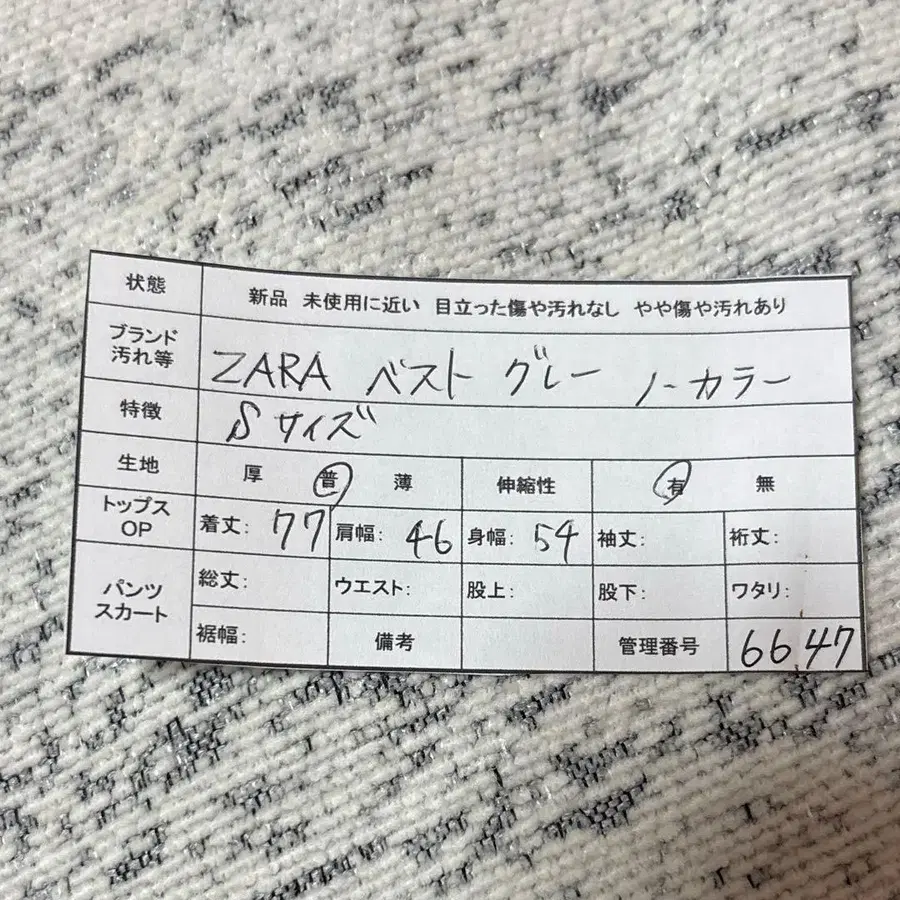 状態 新品 未使用に近い 目立った傷や汚れなし やや傷や汚れあり
ブランド
汚れ等 ZARA ベスト グレー ノーカラー
特徴 Sサイズ
生地 厚 普 薄 伸縮性 有 無
トップス
OP 着丈: 77 肩幅: 46 身幅: 54 袖丈: 裄丈:
パンツ
スカート 総丈: ウエスト: 股上: 股下: ワタリ:
裾幅: 備考 管理番号 6647